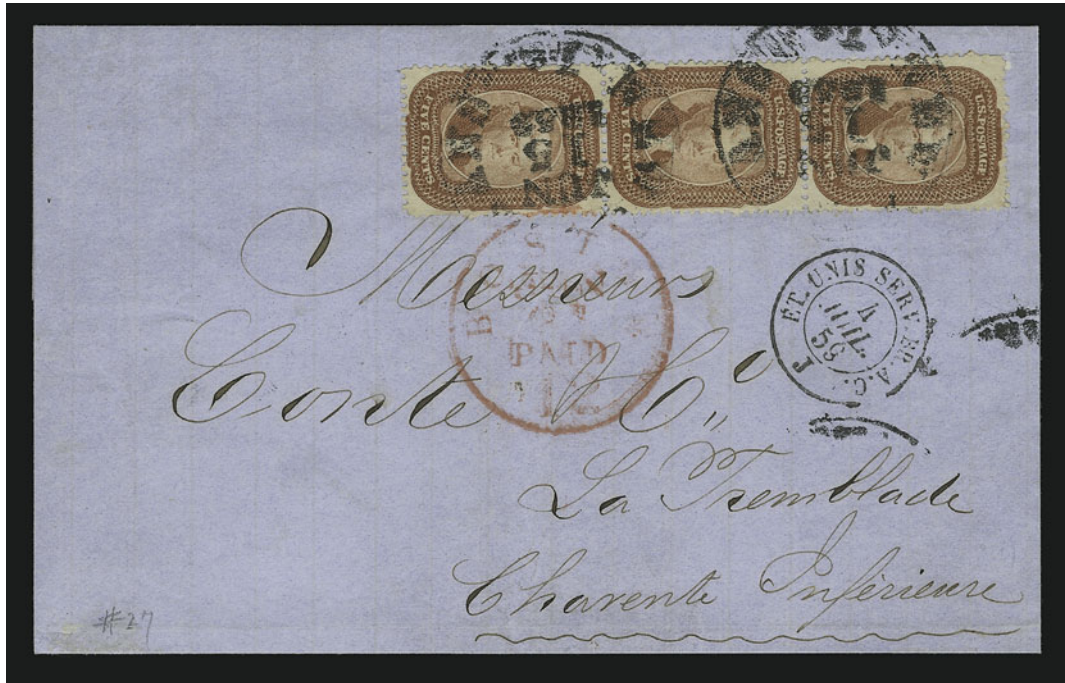 U.S. POSTAGE
FIVE CENTS
U.S. POSTAGE
FIVE CENTS
U.S. POSTAGE
FIVE CENTS
PAID
ET. UNIS SERV. BR. A.C.
4
JUIL.
59
Messieurs
Conte & Co
La Tremblade
Charente Inférieure
#27